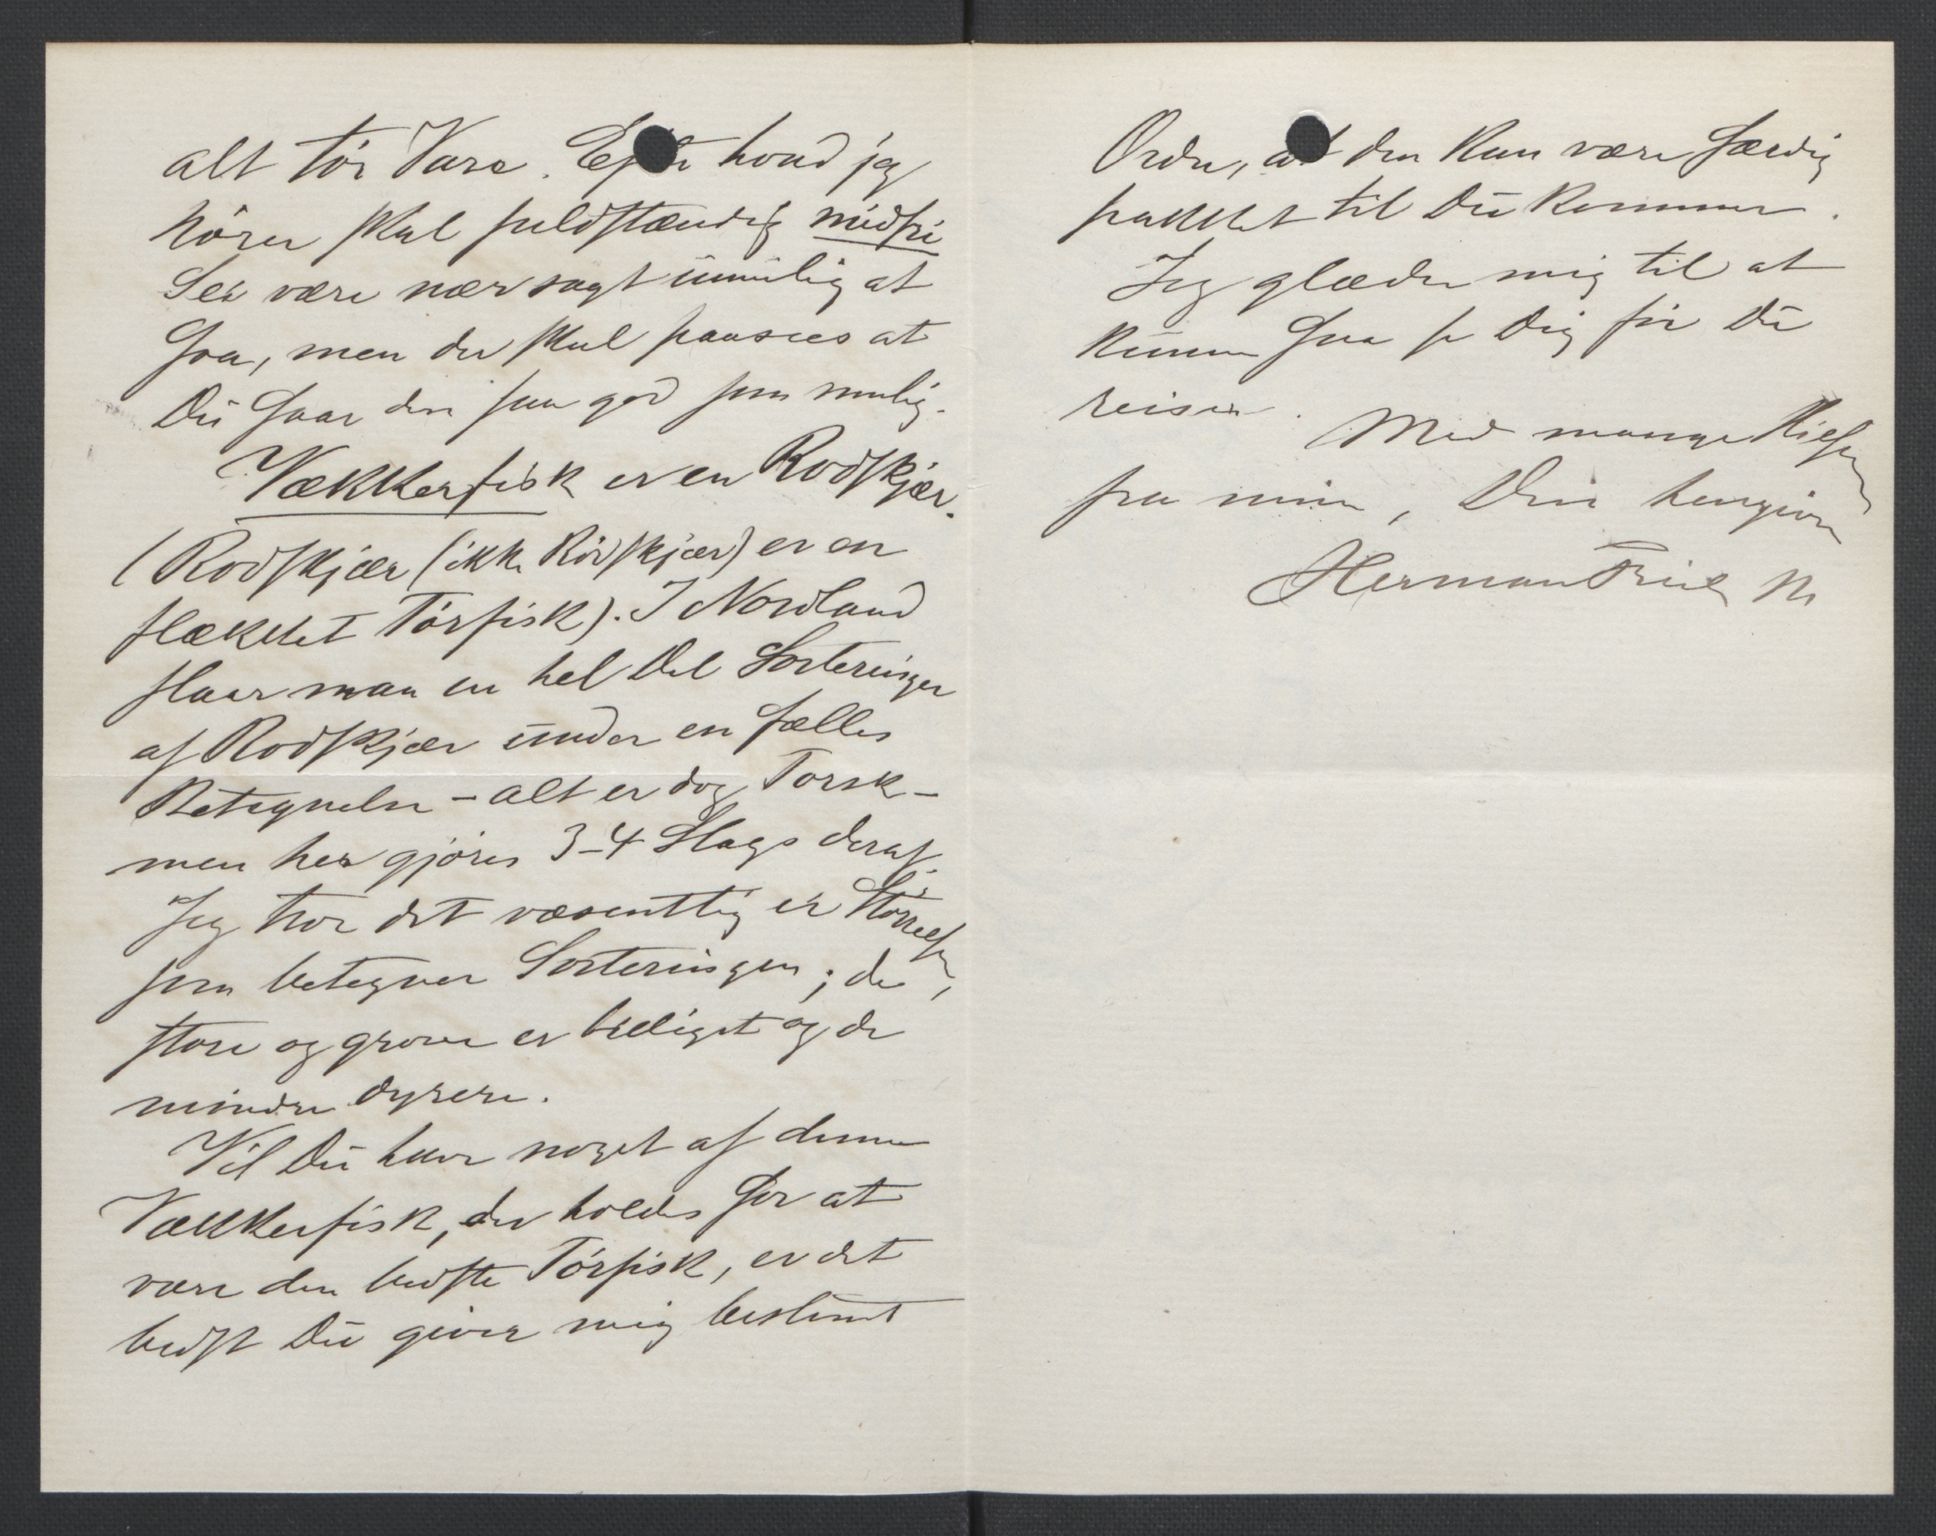 alt tör Vare. Efter hvad jeg
hörer skal fuldstændig midfri
Sei være nær sagt umulig at
faa, men der skal paasees at
Du faar den saa god som mulig.
Vækkerfisk er en Rodskjær.
(Rodskjær (ikke Rödskjær) er en
flækket Törfisk). I Nordland
slaar man en hel Del Sorteringer
af Rodskjær under en fælles
Betegnelse – alt er dog Torsk –
men her gjöres 3–4 Slags deraf.
Jeg tror det væsentlig er Störrelsen,
som betegner Sorteringen; de
store og grove er billigst og de
mindre dyrere.
Vil Du have noget af denne
Vækkerfisk, der holdes for at
være den bedste Törfisk, er det
bedst Du giver mig bestemt
Ordre, at den kan være færdig
pakket til Du kommer.
Jeg glæder mig til at
kunne faa se Dig för Du
reiser.
Med mange Hilsener
fra mine, Din hengivne
Herman Friele